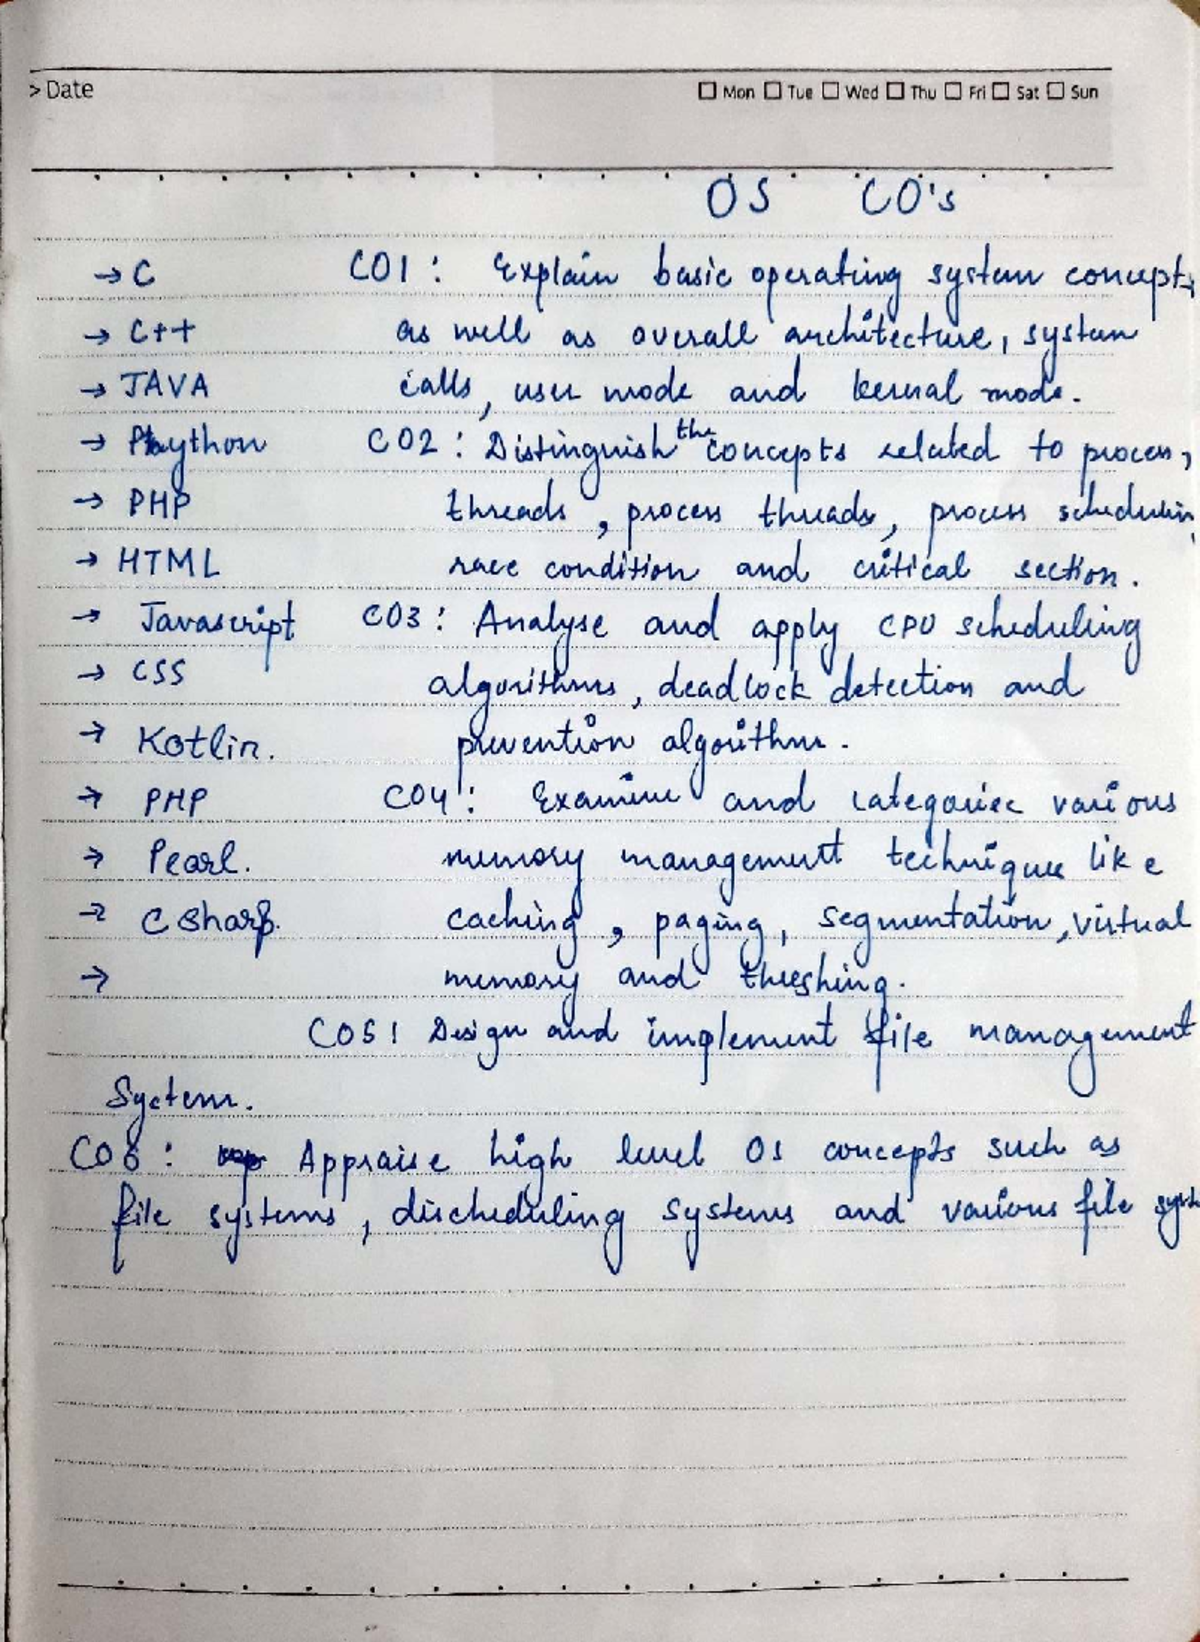 > Date Mon Tue Wed Thu Fri Sat Sun
OS CO's
→ C CO1 : Explain basic operating system concepts
→ C++ as well as overall architecture, system
→ JAVA calls, user mode and kernal mode.
→ Python CO2 : Distinguish the concepts related to process,
→ PHP threads, process threads, process schedulin
→ HTML race condition and critical section.
→ Javascript CO3 : Analyse and apply CPU scheduling
→ CSS algorithms, deadlock detection and
→ Kotlin. prevention algorithm.
→ PHP CO4 : Examine and categories various
→ Pearl. memory management techniques like
→ C Sharp. caching, paging, segmentation, virtual
→ memory and threshing.
CO5 : Design and implement file management
System.
CO6 : Appraise high level OS concepts such as
file systems, discheduling systems and various file syste